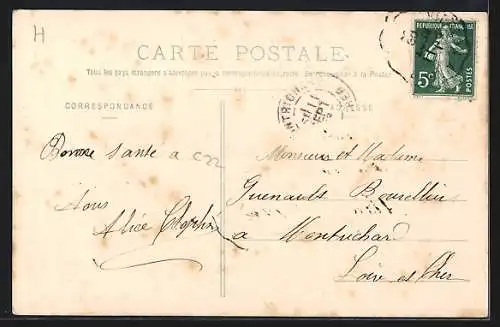 H
CARTE POSTALE
Tous les pays étrangers n'acceptent pas la correspondance au recto. Se renseigner à la Poste
CORRESPONDANCE
ADRESSE
REPUBLIQUE FRANÇAISE
5c
POSTES
SEPT
Bonne Sante a
tous
Alice
Monsieur et Madame
Guenault Bourellier
a Montrichard
Loir et Cher